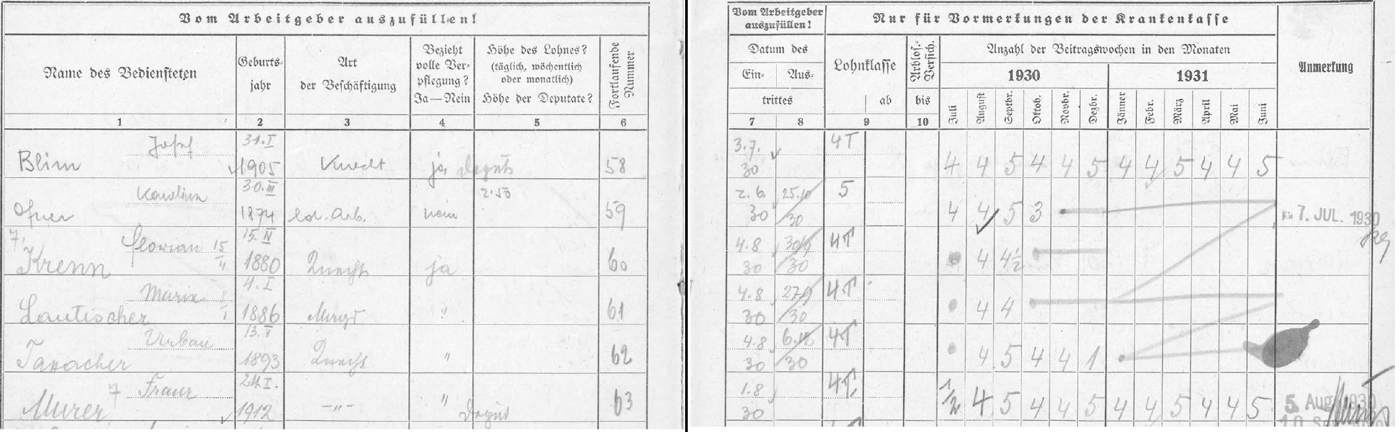 Vom Arbeitgeber auszufüllen!
Name des Bediensteten
Geburts-
jahr
Art
der Beschäftigung
Bezieht
volle Ver-
pflegung?
Ja—Nein
Höhe des Lohnes?
(täglich, wöchentlich
oder monatlich)
Höhe der Deputate?
Fortlaufende
Nummer
1 2 3 4 5 6
Josef 31.I
Blim 1905 Knecht ja Deputs 58
Karolina 30.III 2.50
Ofner 1874 nein 59
Florian 15/4 15.IV
Krenn 1880 Knecht ja 60
Maria 4.I
Lautischer 1886 " 61
Urban
1893 Knecht " 62
Franz 24.I.
Murer 7 1912 -"- " 63
Vom Arbeitgeber
auszufüllen!
Nur für Vormerkungen der Krankenkasse
Datum des
Ein- Aus-
trittes
Lohnklasse
ab
Arblos.-
Versich.
bis
Anzahl der Beitragswochen in den Monaten
1930 1931
Juli August Septbr. Oktob. Novbr. Dezbr. Jänner Febr. März April Mai Juni
Anmerkung
7 8 9 10
3.7. 4T
30 4 4 5 4 4 5 4 4 5 4 4 5
2.6. 25.10 5
30 30 4 4 5 3 7. JUL. 1930
4.8 30/9 4T
30 30 4 4½
4.8 27/9 4T
30 30 4 4
4.8 6.12 4T
30 30 4 5 4 4 1
1.8 4T.
30 ½ 4 5 4 4 5 4 4 5 4 4 5 5. Aug. 1930